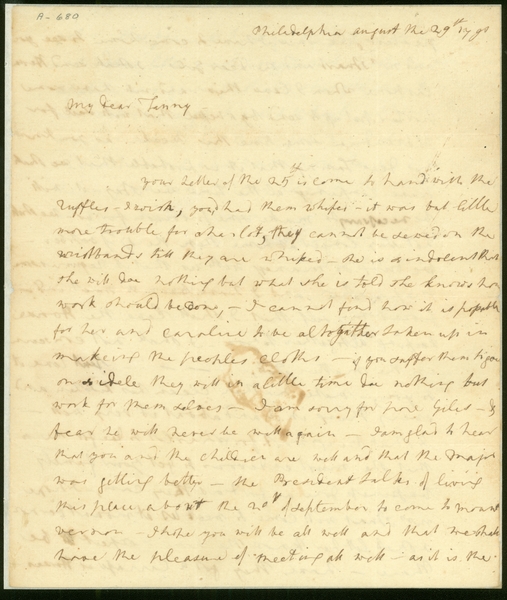 A-680
Philadelphia august the 29th 1791
My Dear Fanny
your Letter of the 25th is come to hand with the
ruffles - I wish, you had them whiped - it was but little
more trouble for charlot, they cannot be sewed on the
wristbands till they are whiped - she is so indolent that
she will doe nothing but what she is told she knows how
work should be done, - I cannot find how it is possable
for her and caroline to be altogather taken up in
makeing the peoples cloths - if you suffer them to goe
on so idele they will in a little time doe nothing but
work for them selves - I am sorry for pore Giles - I
fear he will never be well again - I am glad to hear
that you and the children are well and that the major
was getting better - the President talks of leving
this place about the 20th of september to come to mount
vernon - I hope you will be all well and that we shall
have the pleasure of meeting all well - as it is the